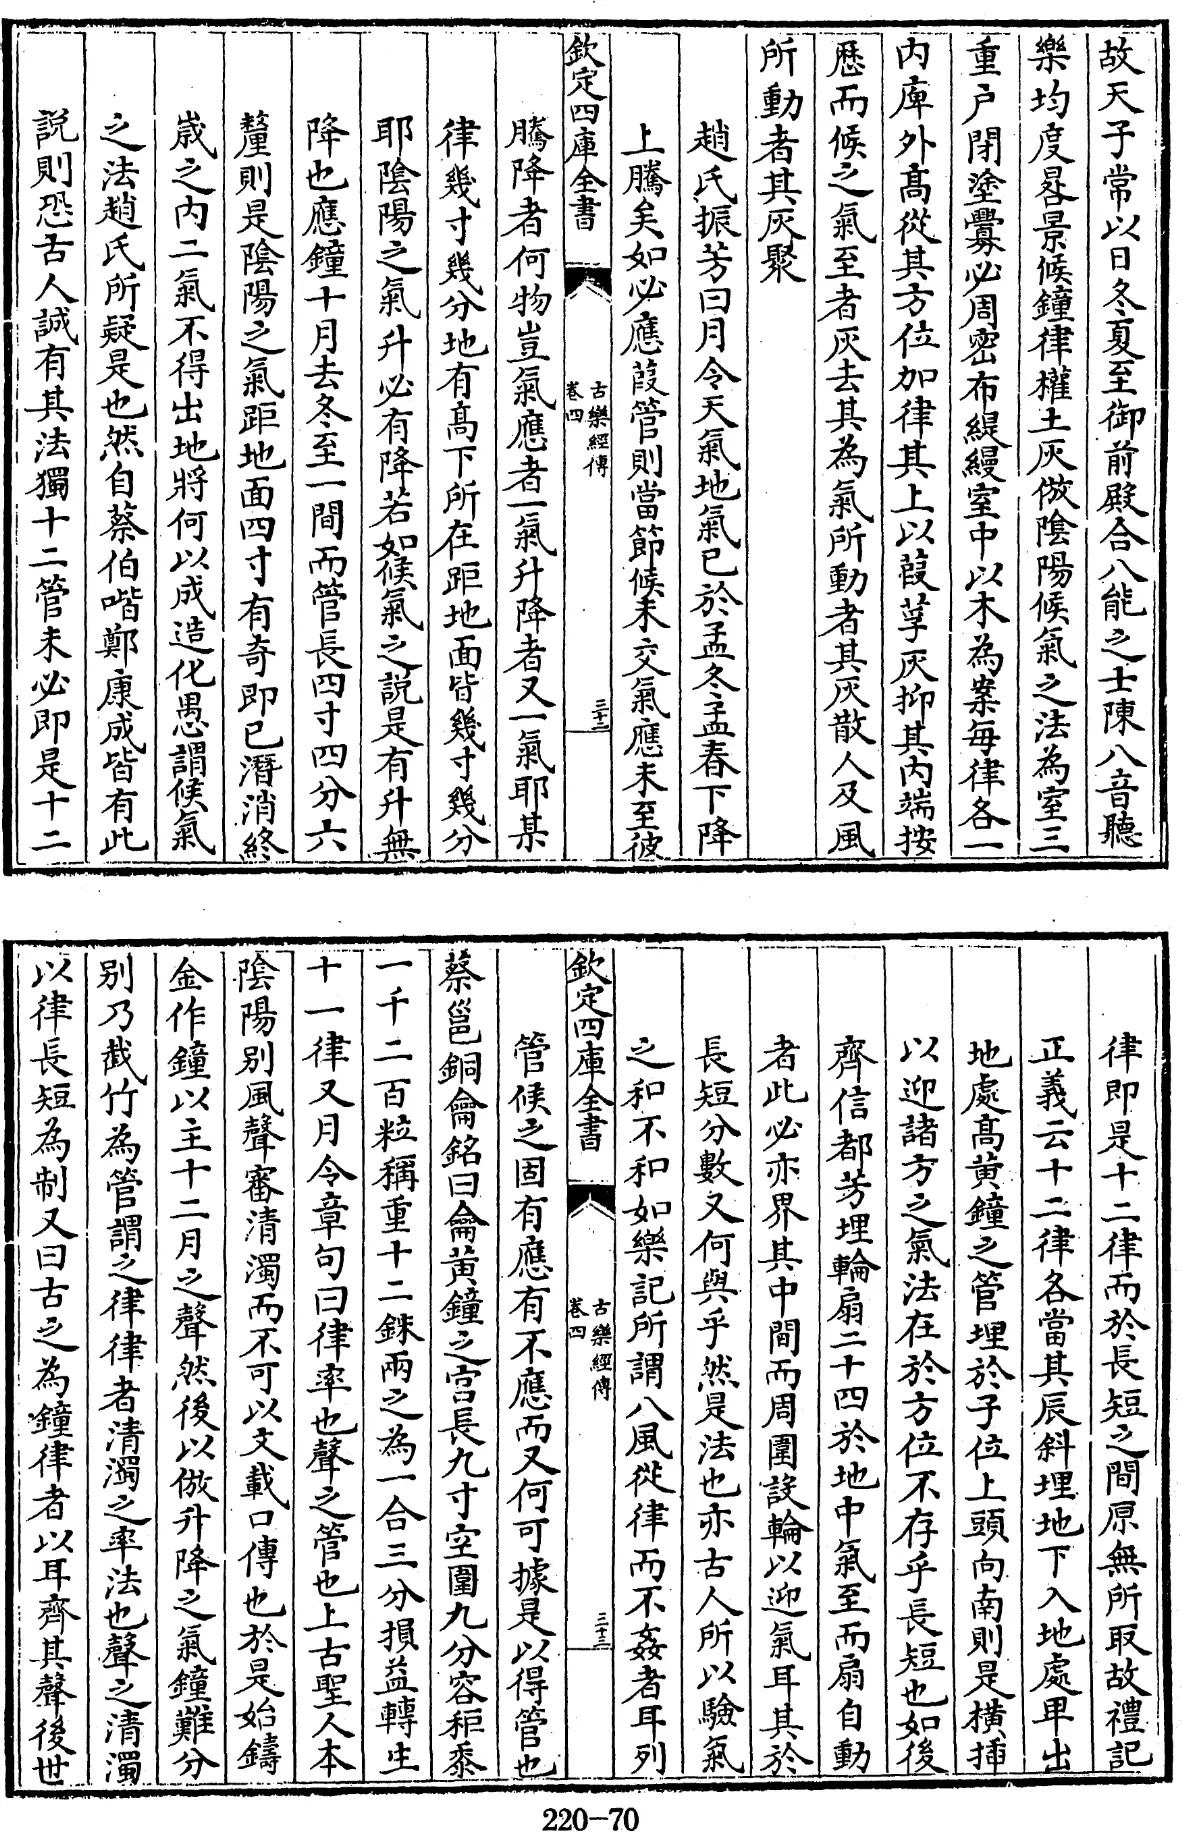 故天子常以日冬夏至御前殿合八能之士陳八音聽
樂均度晷景候鐘律權土灰倣陰陽候氣之法為室三
重户閉塗釁必周密布緹縵室中以木為案每律各一
内庳外高從其方位加律其上以葭莩灰抑其内端按
厯而候之氣至者灰去其為氣所動者其灰散人及風
所動者其灰聚
趙氏振芳曰月令天氣地氣已於孟冬孟春下降
上騰矣如必應葭管則當節候未交氣應未至彼
欽定四庫全書
古樂經傳
卷四
三十二
騰降者何物豈氣應者一氣升降者又一氣耶某
律幾寸幾分地有高下所在距地面皆幾寸幾分
耶陰陽之氣升必有降若如候氣之説是有升無
降也應鐘十月去冬至一間而管長四寸四分六
釐則是陰陽之氣距地面四寸有奇即已潛消終
歲之内二氣不得出地將何以成造化愚謂候氣
之法趙氏所疑是也然自蔡伯喈鄭康成皆有此
説則恐古人誠有其法獨十二管未必即是十二
律即是十二律而於長短之間原無所取故禮記
正義云十二律各當其辰斜埋地下入地處甲出
地處高黄鐘之管埋於子位上頭向南則是横插
以迎諸方之氣法在於方位不存乎長短也如後
齊信都芳埋輪扇二十四於地中氣至而扇自動
者此必亦界其中間而周圍設輪以迎氣耳其於
長短分數又何與乎然是法也亦古人所以驗氣
之和不和如樂記所謂八風從律而不姦者耳列
欽定四庫全書
古樂經傳
卷四
三十三
管候之固有應有不應而又何可據是以得管也
蔡邕銅龠銘曰龠黄鐘之宫長九寸空圍九分容秬黍
一千二百粒稱重十二銖兩之為一合三分損益轉生
十一律又月令章句曰律率也聲之管也上古聖人本
陰陽别風聲審清濁而不可以文載口傳也於是始鑄
金作鐘以主十二月之聲然後以倣升降之氣鐘難分
别乃截竹為管謂之律律者清濁之率法也聲之清濁
以律長短為制又曰古之為鐘律者以耳齊其聲後世
220-70